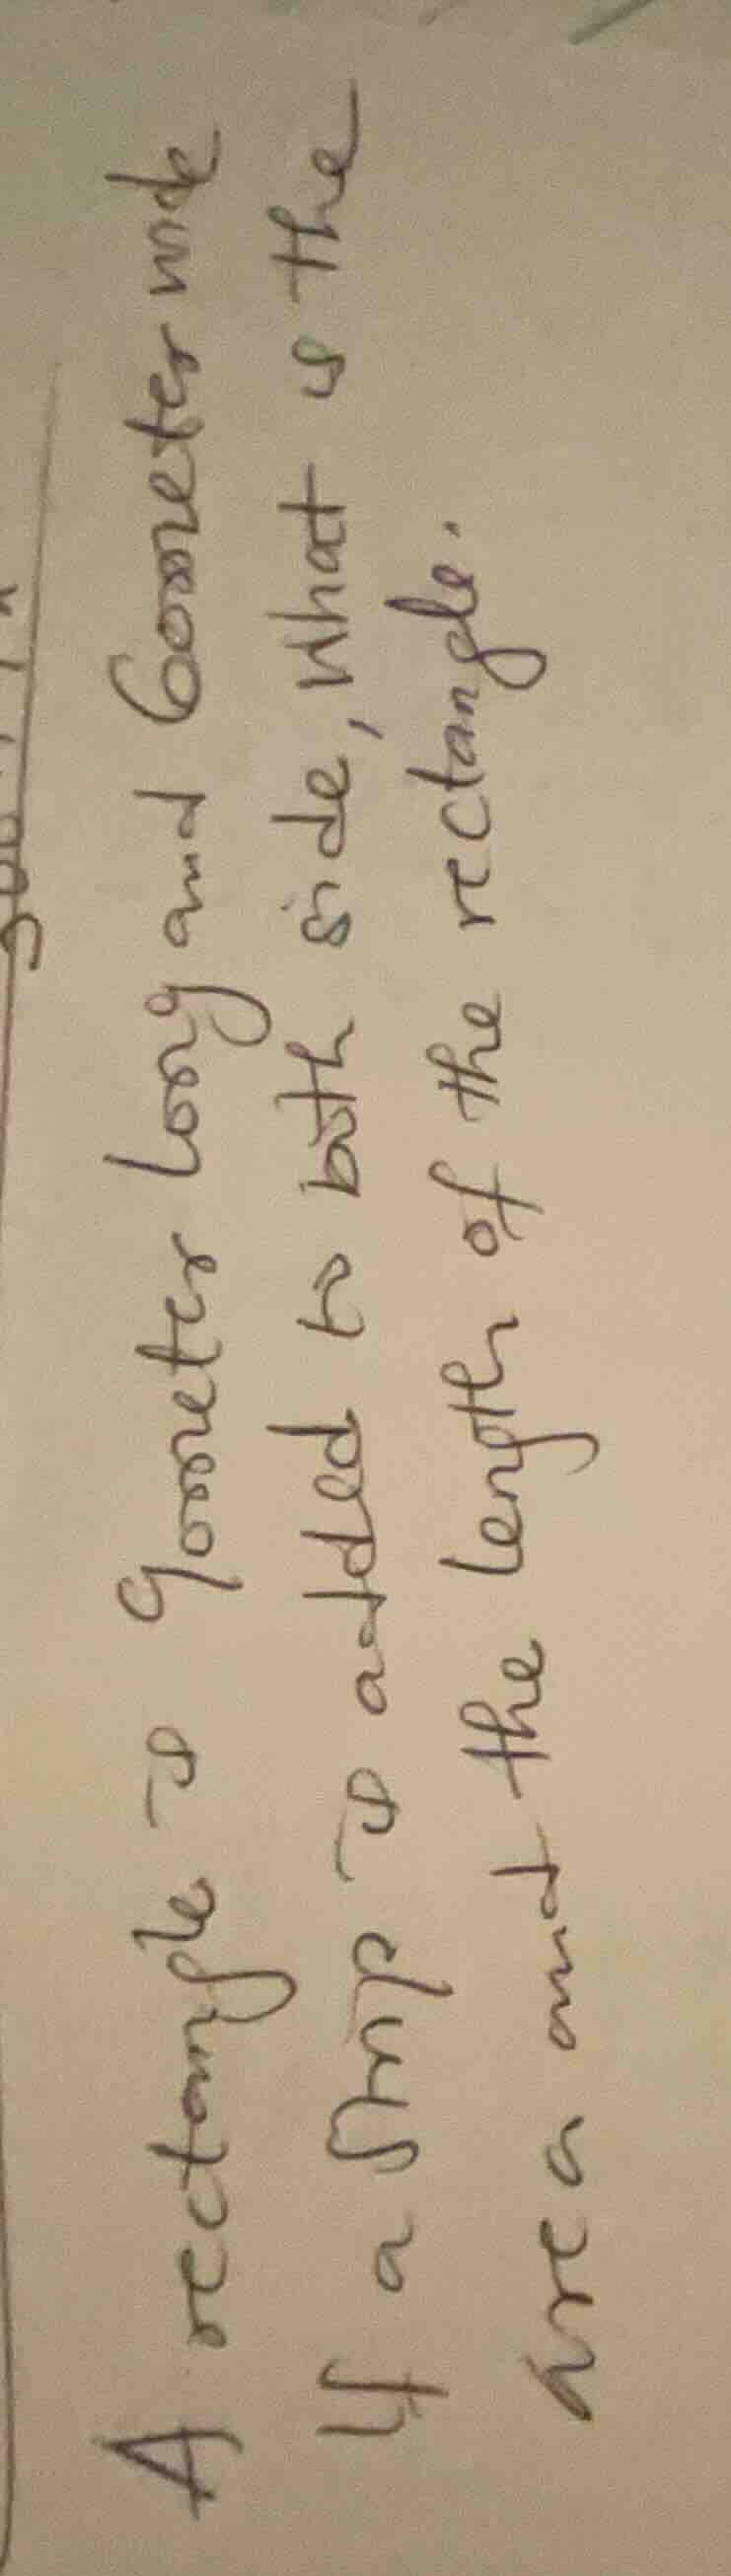 A rectangle is 9ometer long and 60meter wide
If a strip is added to both side, what is the
area and the length of the rectangle.